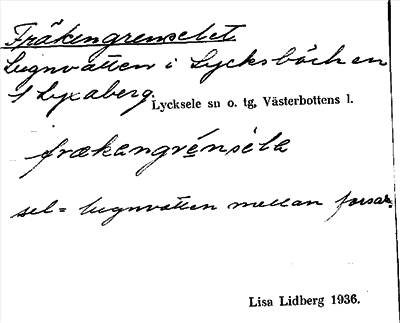 Fräkengrenselet
Lugnvatten i Lycksbäcken
S Lyxaberg.
Lycksele sn o. tg, Västerbottens l.
frækangrénsela
sel = lugnvatten mellan forsar.
Lisa Lidberg 1936.